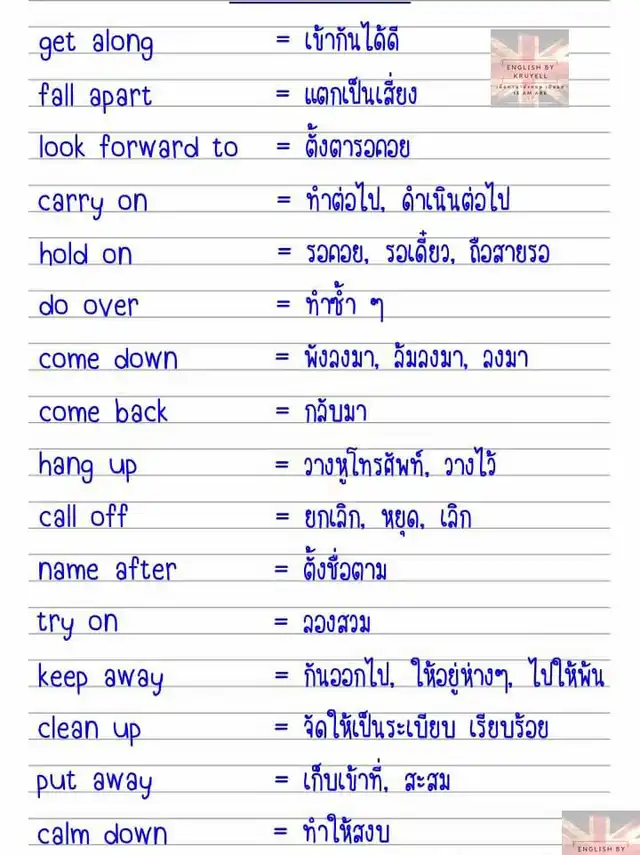 get along = เข้ากันได้ดี
ENGLISH BY
KRUYELL
IS AM ARE
fall apart = แตกเป็นเสี่ยง
look forward to = ตั้งตารอคอย
carry on = ทำต่อไป, ดำเนินต่อไป
hold on = รอคอย, รอเดี๋ยว, ถือสายรอ
do over = ทำซ้ำ ๆ
come down = พังลงมา, ล้มลงมา, ลงมา
come back = กลับมา
hang up = วางหูโทรศัพท์, วางไว้
call off = ยกเลิก, หยุด, เลิก
name after = ตั้งชื่อตาม
try on = ลองสวม
keep away = กันออกไป, ให้อยู่ห่างๆ, ไปให้พ้น
clean up = จัดให้เป็นระเบียบ เรียบร้อย
put away = เก็บเข้าที่, สะสม
calm down = ทำให้สงบ
ENGLISH BY